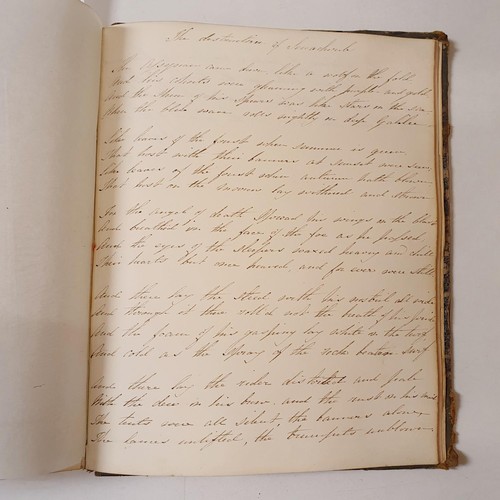 The destruction of Senacherib
The Assyrian came down like a wolf on the fold
And his cohorts were gleaming with purple and gold
And the Sheen of his Spears was like Stars on the sea
When the blue wave rolls nightly on deep Galilee
Like leaves of the forest when summer is green
That host with their banners at Sunset were seen
Like leaves of the forest when autumn hath blown
That host on the morrow lay withered and strown
For the angel of death Spread his wings on the blast
And breathed in the face of the foe as he passed
And the eyes of the Sleepers waxed heavy and chill
Their hearts but once heaved, and for ever were still
And there lay the Steed with his nostril all wide
And through it there roll'd not the breath of his pride
And the foam of his gasping lay white on the turf
And cold as the Spray of the rock beaten Surf
And there lay the rider distorted and pale
With the dew on his brow and the rust on his mail
The tents were all Silent, the banners alone
The lances unlifted, the trumpets unblown